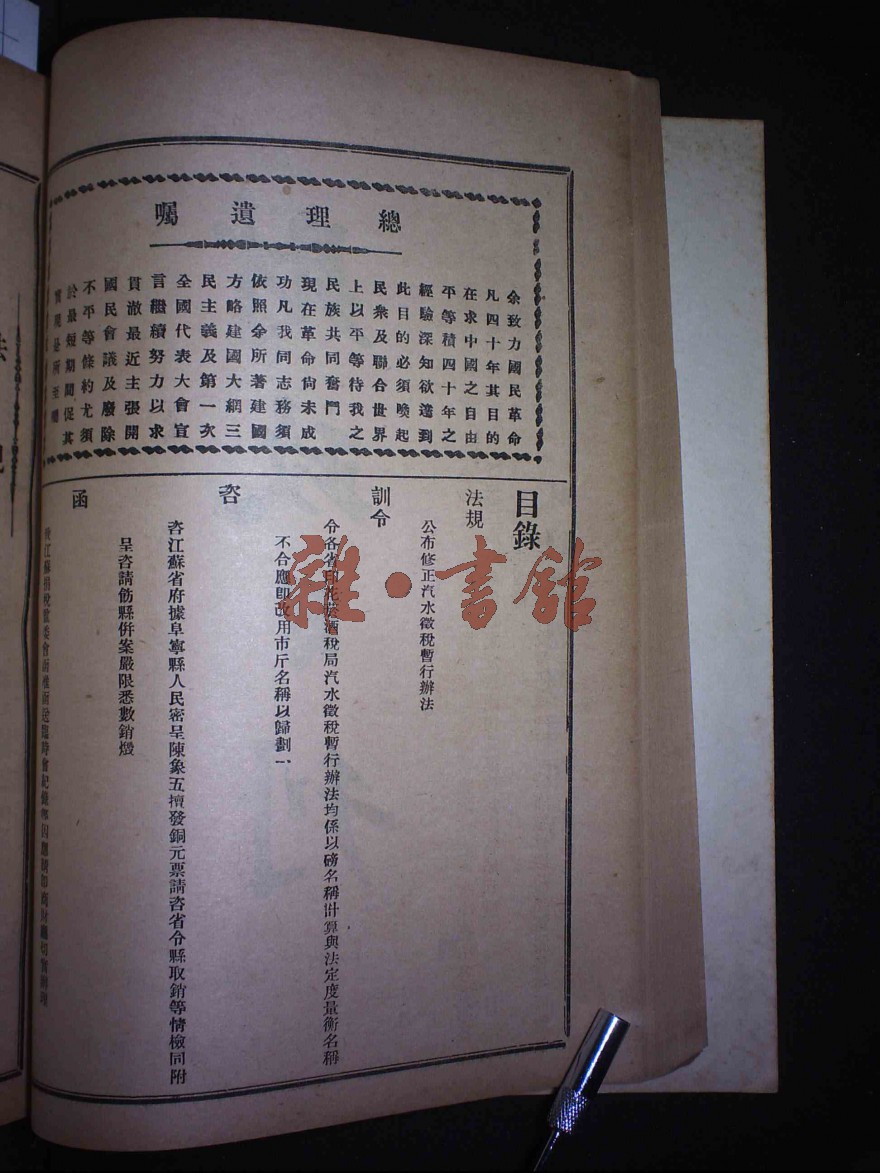 總理遺囑
余致力國民革命
凡四十年其目的
在求中國之自由
平等積四十年之
經驗深知欲達到
此目的必須喚起
民衆及聯合世界
上以平等待我之
民族共同奮鬥
現在革命尙未成
功凡我同志務須
依照余所著建國
方略建國大綱三
民主義及第一次
全國代表大會宣
言繼續努力以求
貫澈最近主張開
國民會議及廢除
不平等條約尤須
於最短期間促其
實現是所至囑
目錄
法規
公布修正汽水徵稅暫行辦法
訓令
令各省印花菸酒稅局汽水徵稅暫行辦法均係以磅名稱計算與法定度量衡名稱
不合應卽改用市斤名稱以歸劃一
咨
咨江蘇省府據阜寧縣人民密呈陳象五擅發銅元票請咨省令縣取銷等情檢同附
呈咨請飭縣併案嚴限悉數銷燬
函
雜·書館